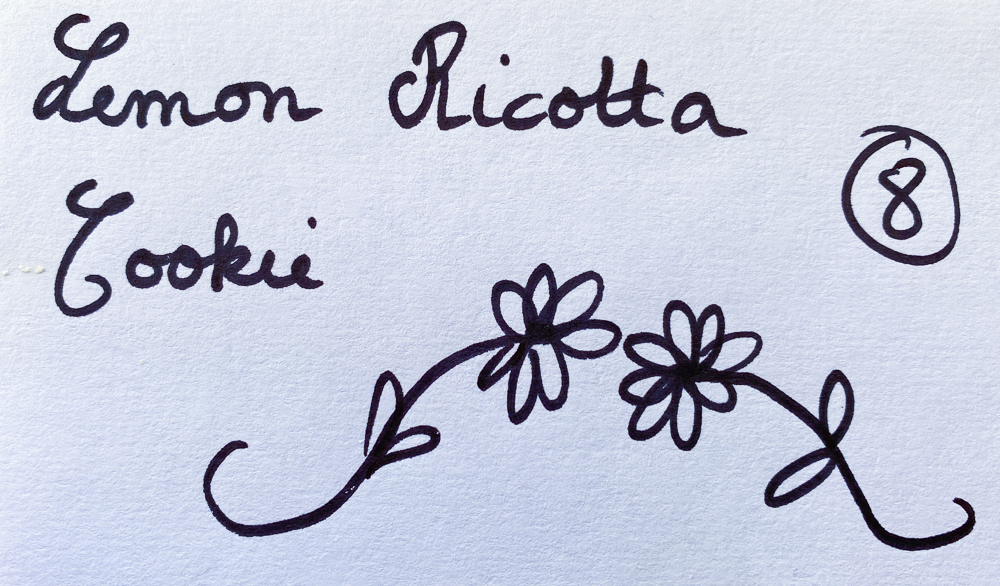 Lemon Ricotta
8
Cookie